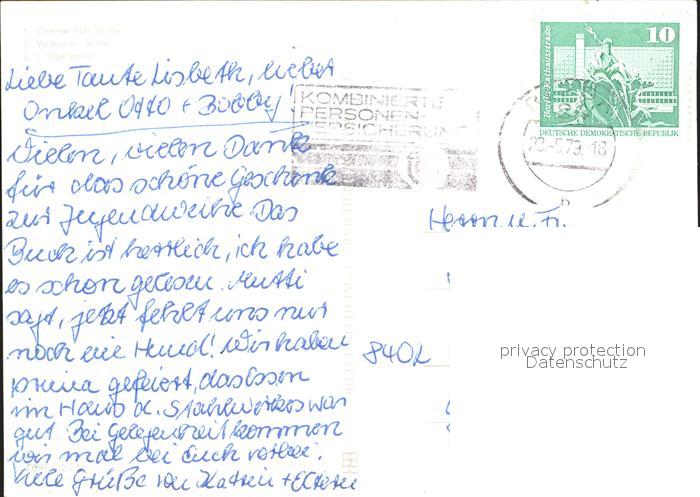 1. Greifswalder Straße
Liebe Tante Lisbeth, lieber
Onkel Otto + Bobby!
Vielen, vielen Dank
für das schöne Geschenk
zur Jugendweihe. Das
Buch ist herrlich, ich habe
es schon gelesen. Mutti
sagt, jetzt fehlt uns nur
noch ein Hund! Wir haben
prima gefeiert, das Essen
im Haus d. Stahlwerkes war
gut. Bei Gelegenheit kommen
wir mal bei Euch vorbei.
Viele Grüße von Katrin + Eltern
KOMBINIERTE
PERSONEN-
VERSICHERUNG
Berlin, Rathausstraße
10
DEUTSCHE DEMOKRATISCHE REPUBLIK
-5.79.-18
b
Herrn u. Fr.
privacy protection
Datenschutz